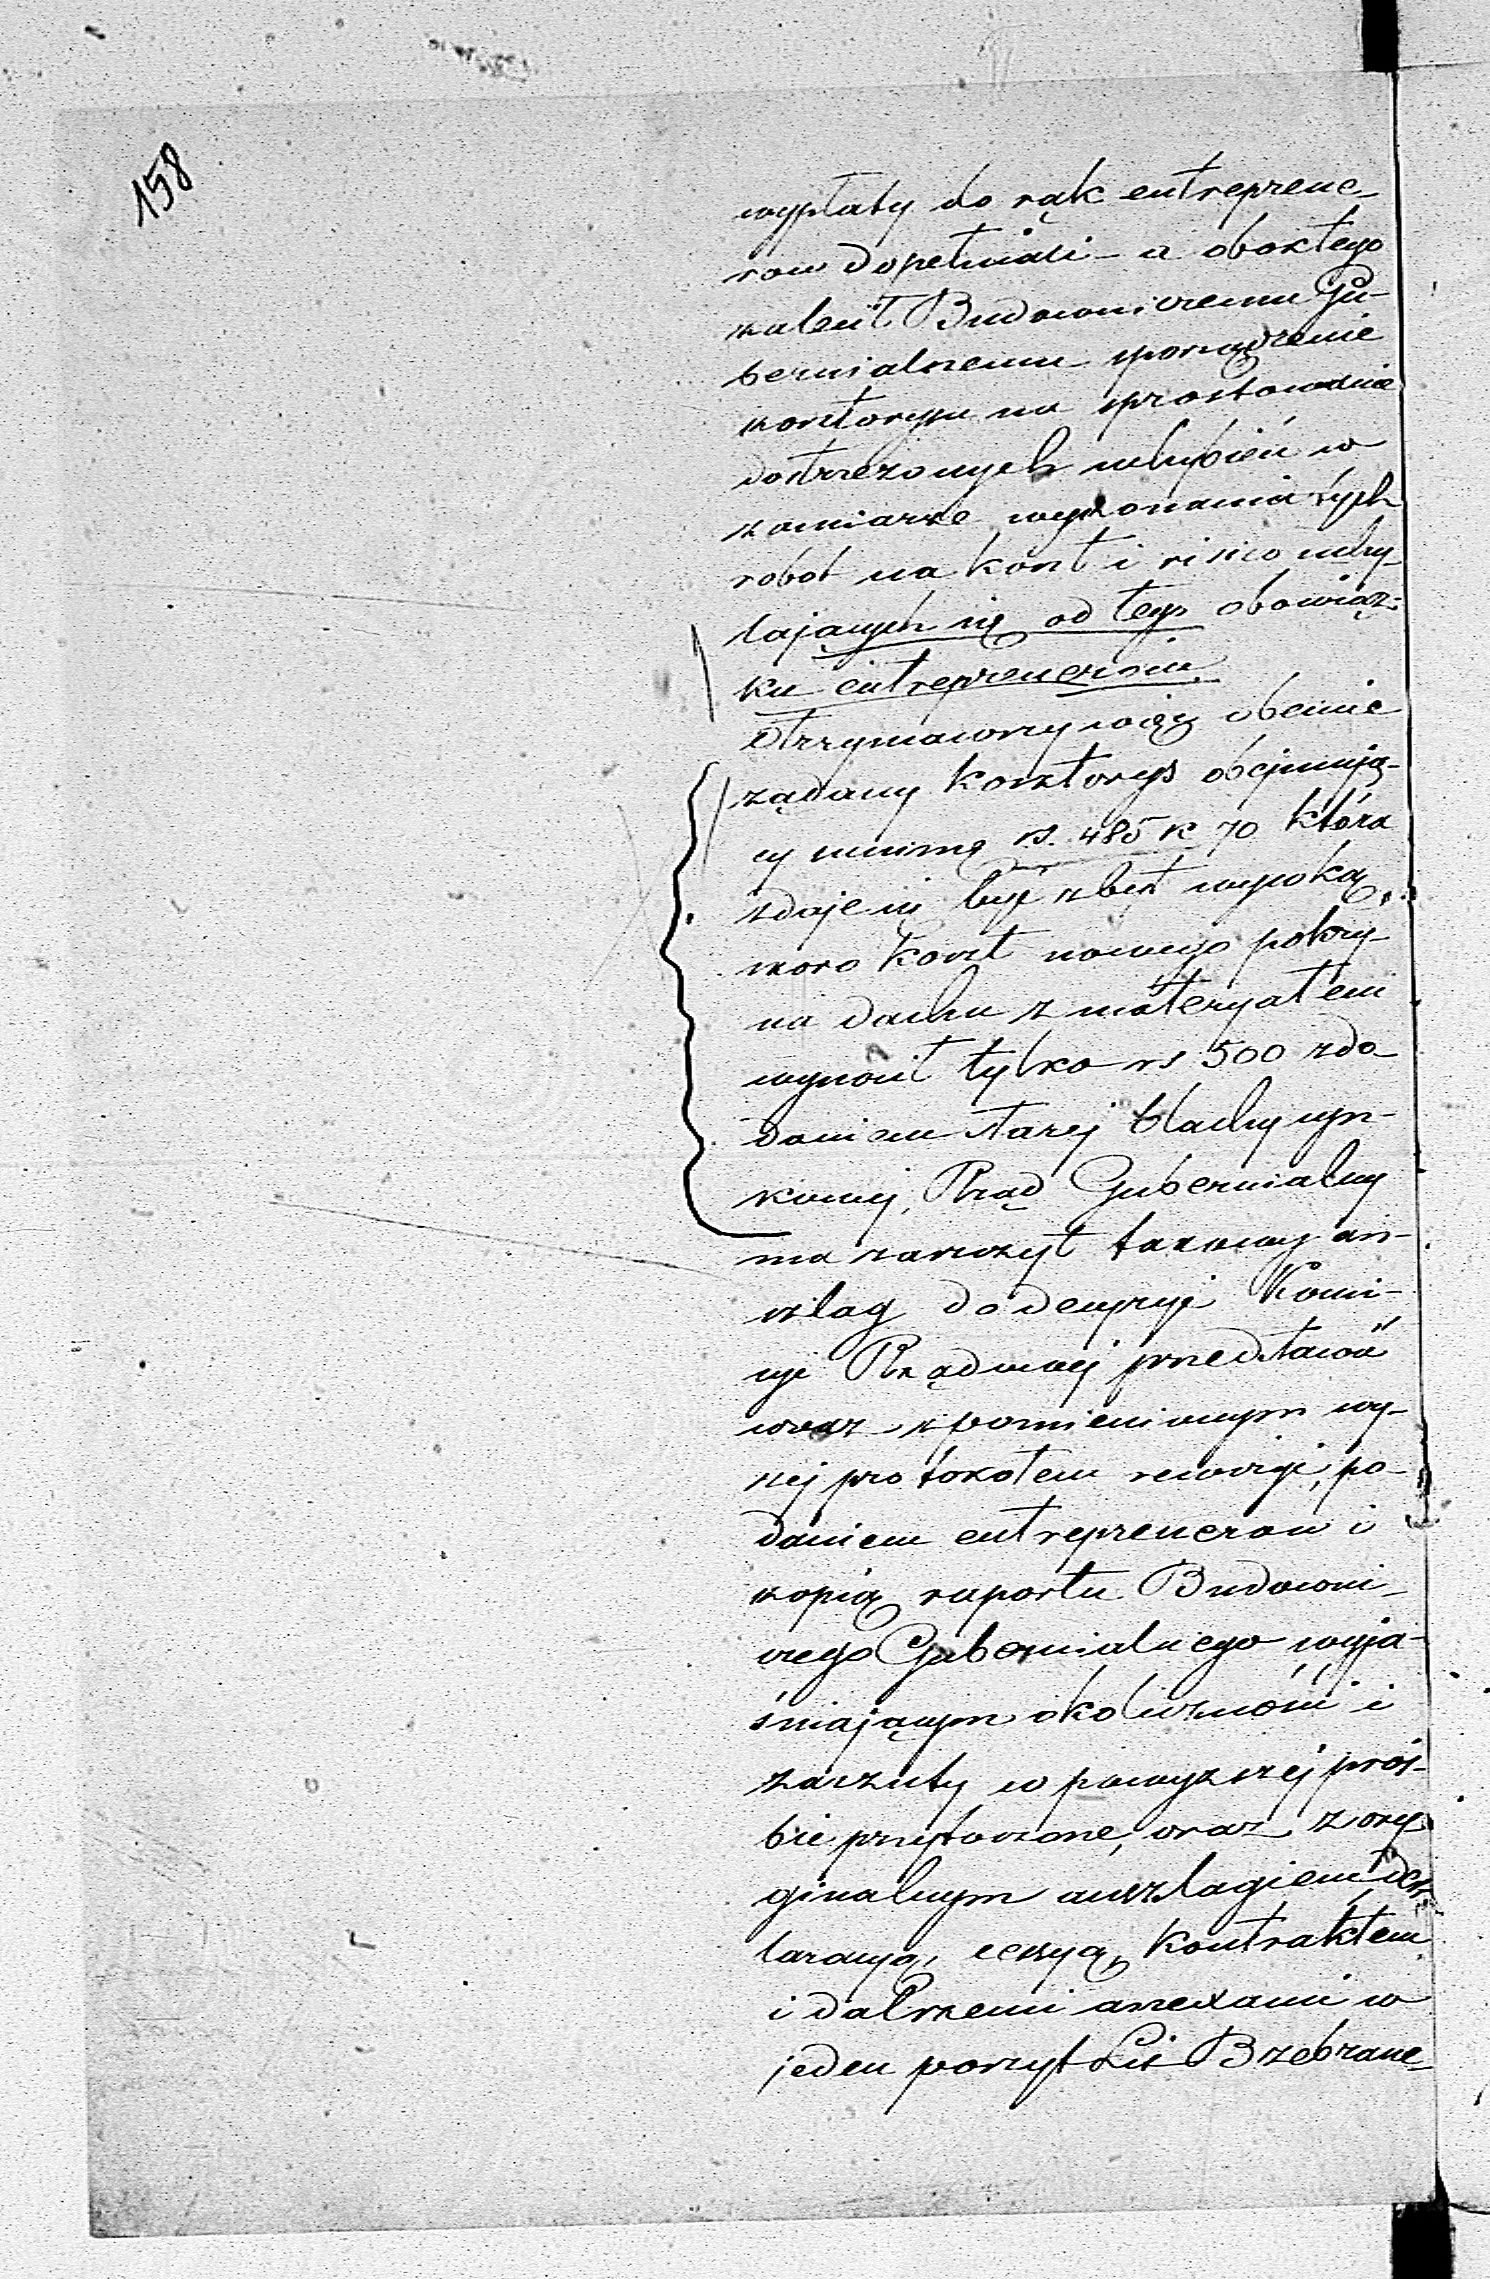 158
wypłaty do rąk entreprene-
rów dopełniali – a obok tego
zalecił Budowniczemu Gu-
bernialnemu sporządzenie
kosztorysu na sprostowanie
dostrzeżonych uchybień w
zamiarze wykonania tych
robot na koszt i risico uchy-
lających się od tego obowiąz-
ku entreprenerów.
Otrzymawszy więc obecnie
żądany kosztorys obejmują-
cy summę rs. 485 k 70 która
zdaje się być zbyt wysoką,
skoro koszt nowego pokry-
na dachu z materyałem
wynosił tylko rs 500 z do-
daniem starej blachy cyn-
kowej, Rząd Gubernialny
ma zaszczyt takowy an-
szlag do decyzyi Komi-
syi Rządowej przedstawić
wraz z pomienionym wy-
żej protokołem rewizyi, po-
daniem entreprenerów i
kopią raportu Budowni-
czego Gubernialnego wyja-
śniającym okoliczności i
zarzuty w powyższej proś-
bie przytoczone, oraz z ory-
ginalnym anszlagiem dek-
laracyą, cessyą, kontraktem
i dalszemi annexami w
jeden poszyt Lit B zebrane-